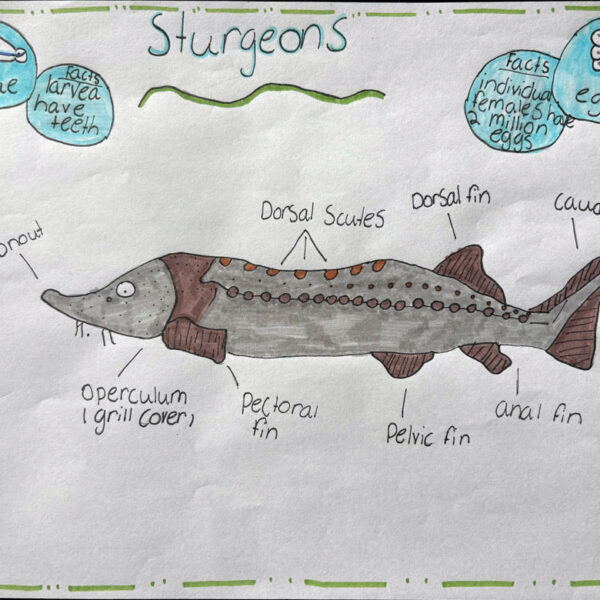 Sturgeons
Facts
larvea
have
teeth
Facts
individual
females have
2 million
eggs
Dorsal Scutes
Dorsal fin
Operculum
(grill cover)
Pectoral
fin
Pelvic fin
anal fin